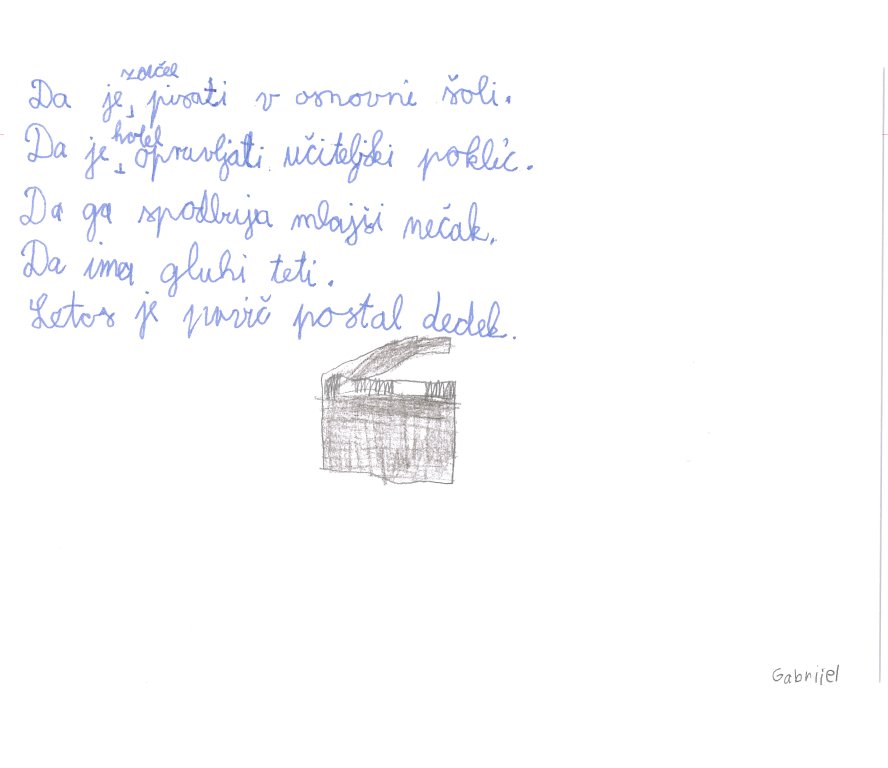 Da je začel pisati v osnovni šoli.
Da je hotel opravljati učiteljski poklic.
Da ga spodbuja mlajši nečak.
Da ima gluhi teti.
Letos je prvič postal dedek.
Gabrijel